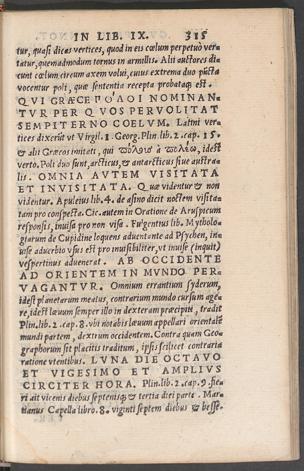 IN LIB. IX. 315
tur, quasi dicas vertices, quod in eis cœlum perpetuò ver≠
tatur, quemadmodum tornus in armillis. Alii auctores di≠
cunt cœlum circum axem volui, cuius extrema duo pũcta
vocentur poli, quæ sententia recepta probataq; est.
QVI GRÆCE ΠΌΛΟΙ NOMINAN≠
TVR PER QVOS PERVOLITAT
SEMPITERNO COELVM. Latini ver≠
tices dixerũt ut Virgil. 1. Georg. Plin. lib. 2. cap. 15.
& alii Græcos imitati, qui πόλοις à πολέω, idest
verto. Poli duo sunt, arcticus, & antarcticus siue austra≠
lis. OMNIA AVTEM VISITATA
ET INVISITATA. Quæ videntur & non
videntur. Apuleius lib. 4. de asino dicit noctẽm visita≠
tam pro conspecta. Cic. autem in Oratione de Aruspicum
responsis, inuisa pro non visa. Fulgentius lib. Mytholo≠
giarum de Cupidine loquens aduentante ad Psychen, in≠
uise aduerbio vsus est pro inuisibiliter, vt inuise (inquit)
vespertinus aduenerat. AB OCCIDENTE
AD ORIENTEM IN MVNDO PER≠
VAGANTVR. Omnium errantium syderum,
idest planetarum meatus, contrarium mundo cursum age≠
re, idest læuum semper illo in dexteram præcipiti, tradit
Plin. lib. 2. cap. 8. vbi notabis læuum appellari orientalẽ
mundi partem, dextrum occidentem. Contra quam Geo≠
graphorum sit placitis traditum, ipsi scilicet contraria
ratione vtentibus. LVNA DIE OCTAVO
ET VIGESIMO ET AMPLIVS
CIRCITER HORA. Plin. lib. 2. cap. 9. fie≠
ri ait vicenis diebus septenisq; & tertia diei parte. Mar≠
tianus Capella libro. 8. viginti septem diebus & besse.